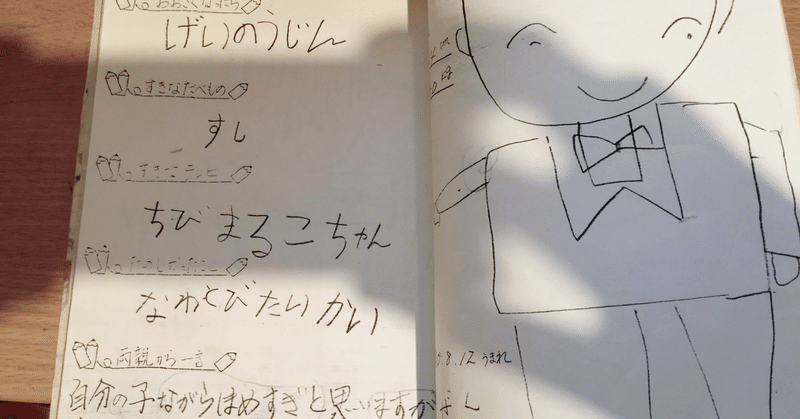 おおきくなったら
げいのうじん
すきなたべもの
すし
すきなテレビ
ちびまるこちゃん
たのしかったこと
なわとびたいかい
両親から一言
自分の子ながらほめすぎと思いますが
8.12 うまれ